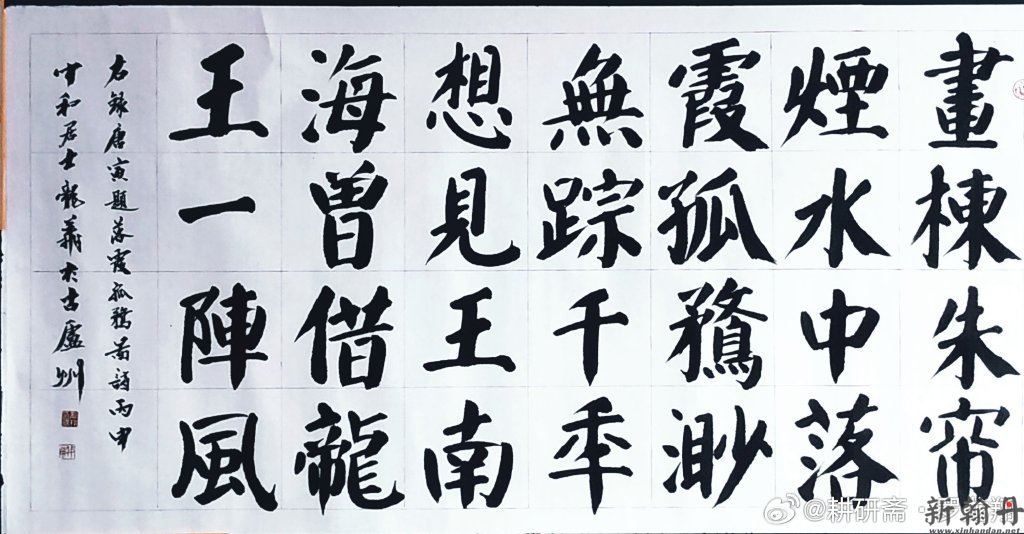 畫棟朱帘
煙水中落
霞孤鶩渺
無踪千年
想見王南
海曾借龍
王一陣風
右錄唐寅題落霞孤鶩圖詩丙申
守和居士龍義於古廬州
@耕研斋
新翰丹
www.xinhandan.net